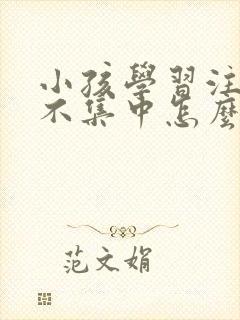 小孩學習注
不集中怎麼
范文娟